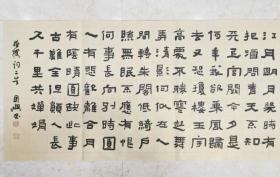 月明月幾時有
把酒問青天不知
天上宮闕今夕是
何年我欲乘風歸
去又恐瓊樓玉宇
高處不勝寒起舞
弄清影何似在人
間轉朱閣低綺戶
照無眠不應有恨
何事長向別時圓
人有悲歡離合月
有陰晴圓缺此事
古難全但願人長
久千里共嬋娟